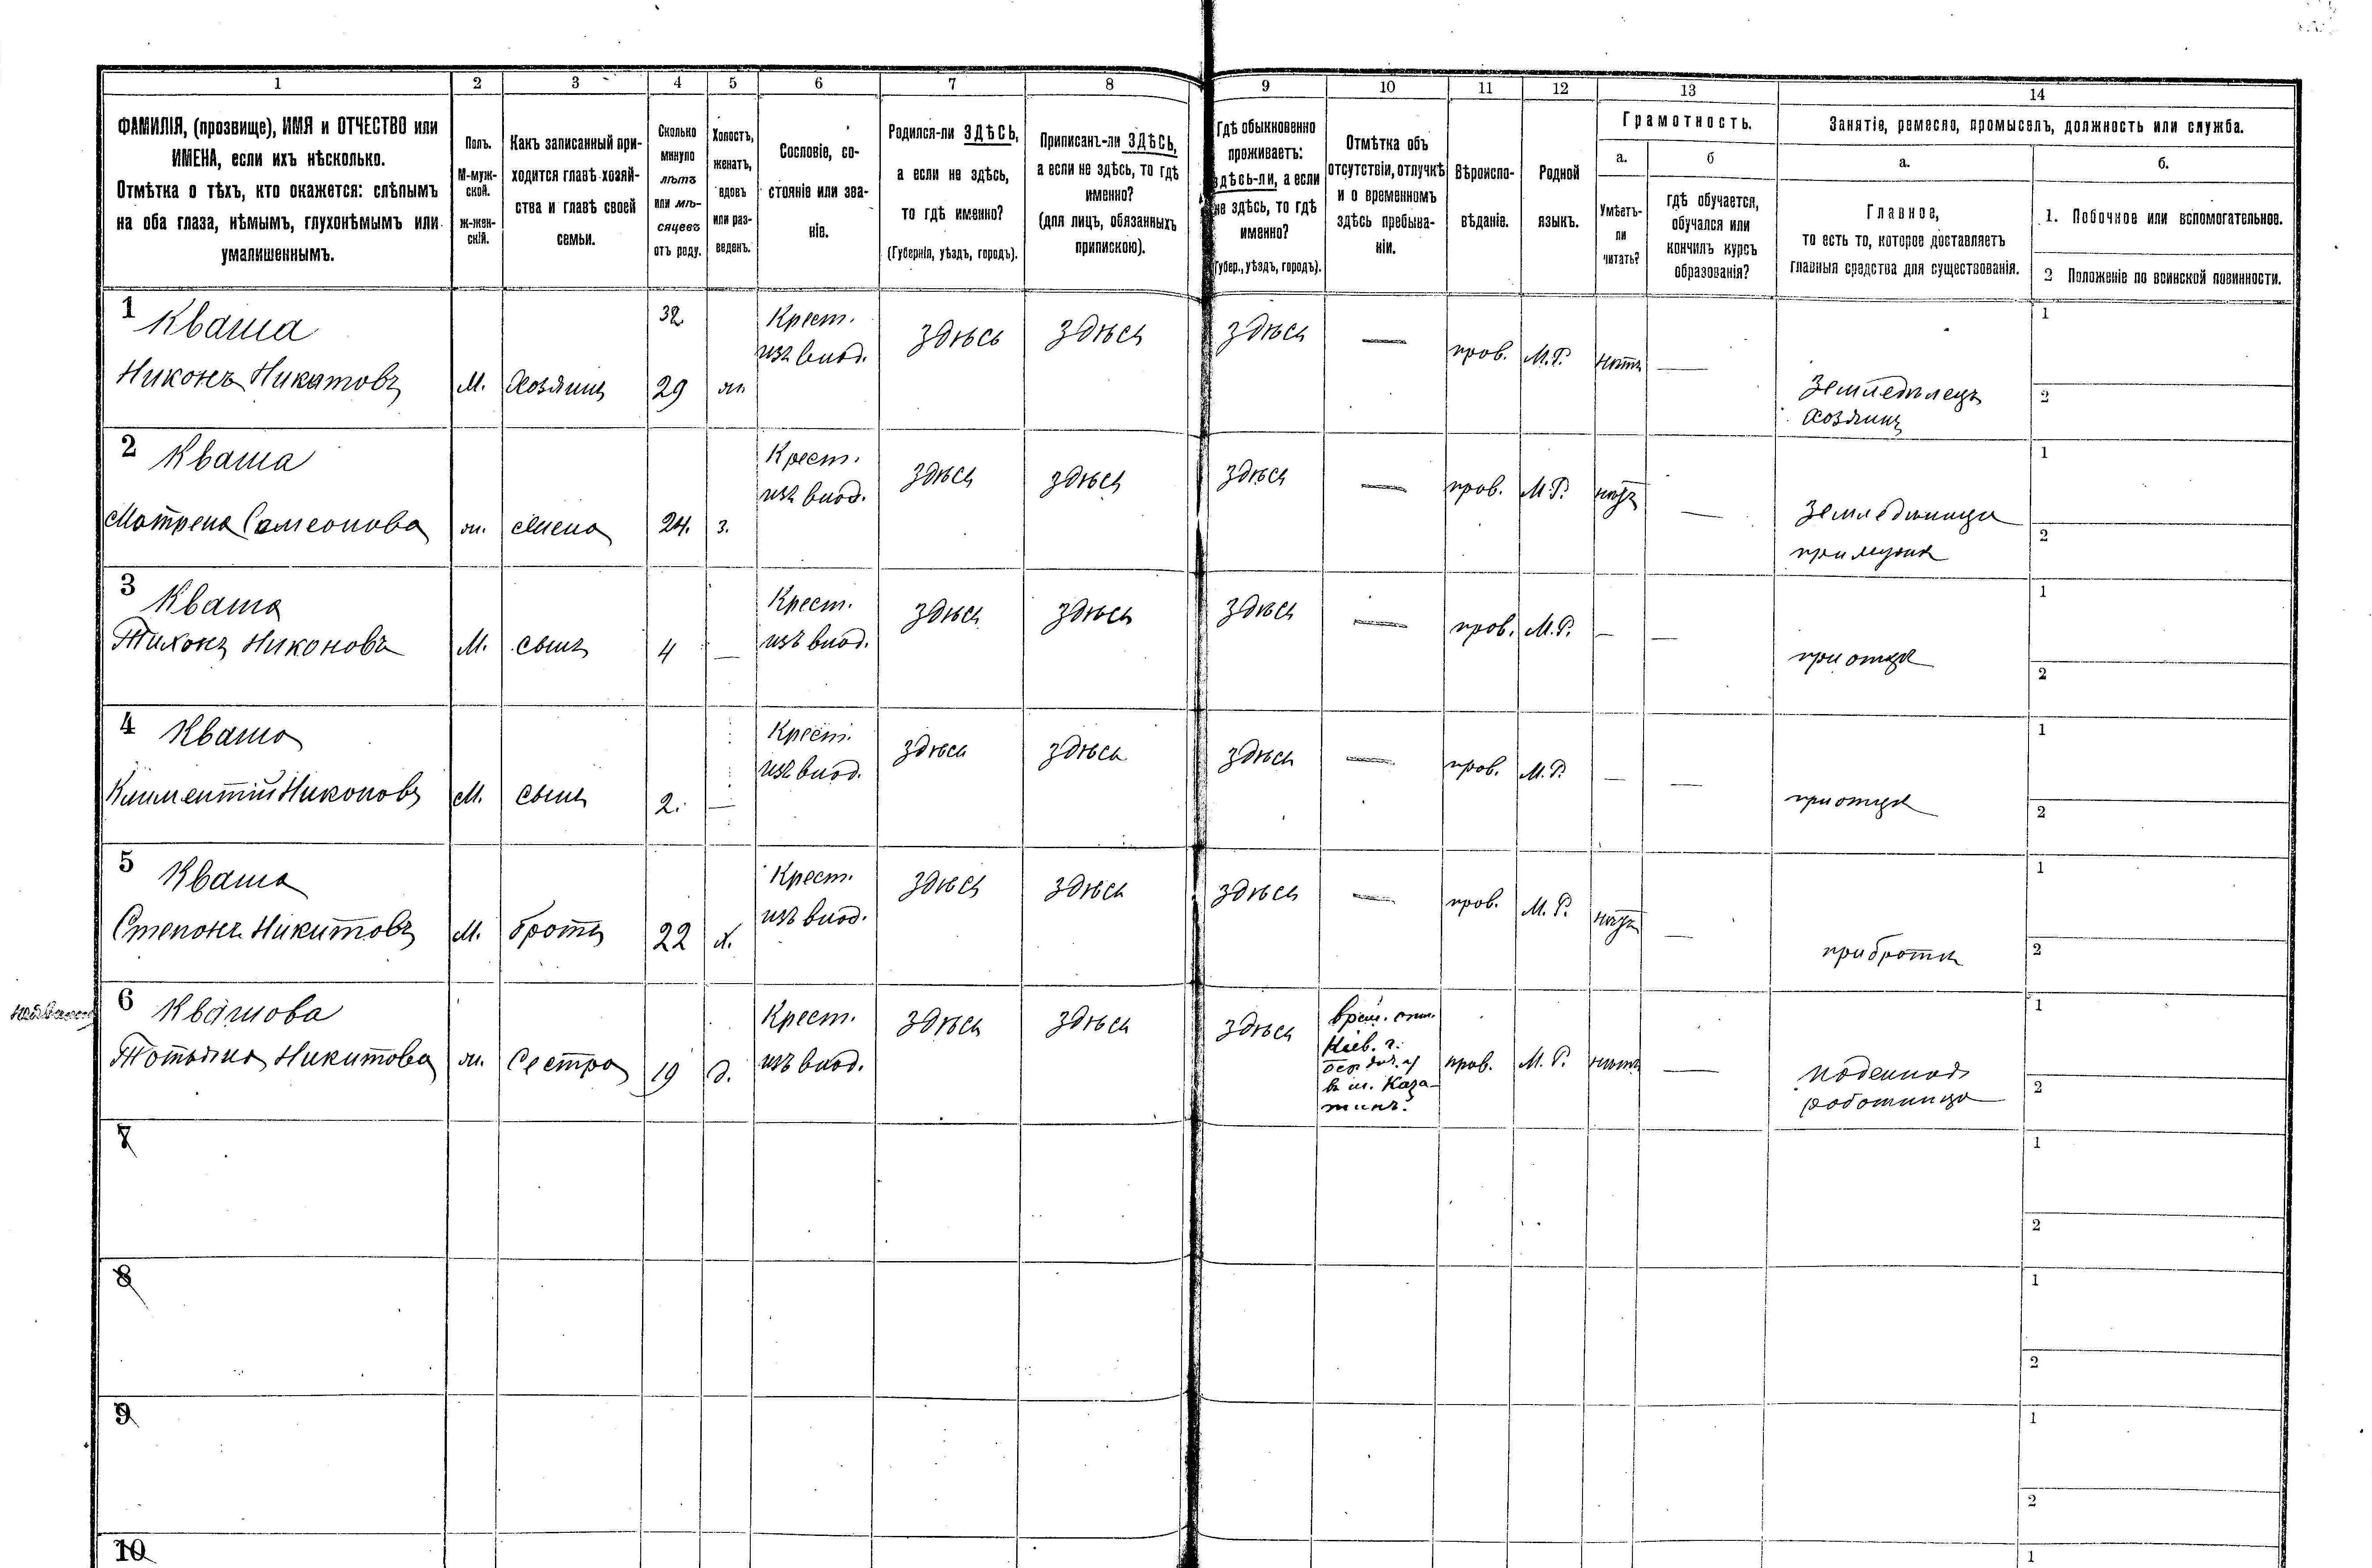 1 2 3 4 5 6 7 8 9 10 11 12 13 14
ФАМИЛІЯ, (прозвище), ИМЯ и ОТЧЕСТВО или
ИМЕНА, если ихъ нѣсколько.
Отмѣтка о тѣхъ, кто окажется: слѣпымъ
на оба глаза, нѣмымъ, глухонѣмымъ или
умалишеннымъ.
Полъ.
М-муж-
ской.
ж-жен-
скій.
Какъ записанный при-
ходится главѣ хозяй-
ства и главѣ своей
семьи.
Сколько
минуло
лѣтъ
или мѣ-
сяцевъ
отъ роду.
Холостъ,
женатъ,
вдовъ
или раз-
веденъ.
Сословіе, со-
стояніе или зва-
ніе.
Родился-ли ЗДѢСЬ,
а если не здѣсь,
то гдѣ именно?
(Губернія, уѣздъ, городъ).
Приписанъ-ли ЗДѢСЬ,
а если не здѣсь, то гдѣ
именно?
(для лицъ, обязанныхъ
припискою).
Гдѣ обыкновенно
проживаетъ:
здѣсь-ли, а если
не здѣсь, то гдѣ
именно?
(Губер., уѣздъ, городъ).
Отмѣтка объ
отсутствіи, отлучкѣ
и о временномъ
здѣсь пребыва-
ніи.
Вѣроиспо-
вѣданіе.
Родной
языкъ.
Грамотность.
а.
Умѣетъ-
ли
читать?
б
гдѣ обучается,
обучался или
кончилъ курсъ
образованія?
Занятіе, ремесло, промыселъ, должность или служба.
а.
Главное,
то есть то, которое доставляетъ
главныя средства для существованія.
б.
1. Побочное или вспомогательное.
2 Положеніе по воинской повинности.
1 Кваша
Никонъ Никитовъ
М.
Хозяинъ
32
29
ж.
Крест.
изъ влад.
здѣсь
здѣсь
здѣсь
—
прав.
М.Р.
нѣтъ
—
Земледѣлецъ
хозяинъ
1
2
2 Кваша
Матрена Самсонова
ж.
жена
24.
з.
Крест.
изъ влад.
здѣсь
здѣсь
здѣсь
—
прав.
М.Р.
нѣтъ
—
при мужѣ
1
2
3 Кваша
Тихонъ Никоновъ
М.
сынъ
4
—
Крест.
изъ влад.
здѣсь
здѣсь
здѣсь
—
прав.
М.Р.
—
—
при отцѣ
1
2
4 Кваша
Климентій Никоновъ
М.
сынъ
2.
—
Крест.
изъ влад.
здѣсь
здѣсь
здѣсь
—
прав.
М.Р.
—
—
при отцѣ
1
2
5 Кваша
Степанъ Никитовъ
М.
братъ
22
х.
Крест.
изъ влад.
здѣсь
здѣсь
здѣсь
—
прав.
М.Р.
нѣтъ
—
при братѣ
1
2
6 Квашова
Татьяна Никитова
ж.
Сестра
19
д.
Крест.
изъ влад.
здѣсь
здѣсь
здѣсь
врем. отл.
Кіев. г.
Бердич. у
в м. Каза-
тинъ.
прав.
М.Р.
нѣтъ
—
поденная
работница
1
2
7
1
2
8
1
2
9
1
2
10
1